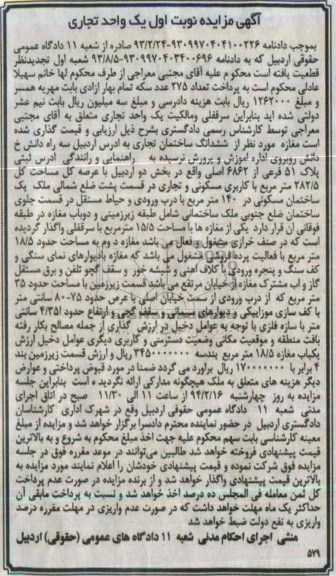 آگهی مزایده نوبت اول یک واحد تجاری
بموجب دادنامه ۹۳۰۹۹۷۰۴۰۴۱۰۰۲۲۶-۹۳/۲/۲۴ صادره از شعبه ۱۱ دادگاه عمومی
حقوقی اردبیل که به دادنامه ۹۳۰۹۹۷۰۴۰۳۴۰۰۶۹۶-۹۳/۸/۵ شعبه اول تجدیدنظر
قطعیت یافته است محکوم علیه آقای مجتبی معراجی از طرف محکوم لها خانم سهیلا
عادلی محکوم است به پرداخت تعداد ۳۷۵ عدد سکه تمام بهار آزادی بابت مهریه همسر
و مبلغ ۱۲۶۲۰۰۰ ریال بابت هزینه دادرسی و مبلغ سه میلیون ریال بابت نیم عشر
دولتی شده اید بنابراین سرقفلی ومالکیت یک واحد تجاری متعلق به آقای مجتبی
معراجی توسط کارشناس رسمی دادگستری بشرح ذیل ارزیابی و قیمت گذاری شده
است مغازه مورد نظر از ششدانگ ساختمان تجاری به آدرس اردبیل سه راه دانش خ
دانش روبروی اداره آموزش و پرورش نرسیده به راهنمایی و رانندگی آدرس ثبتی
پلاک ۵۱ فرعی از ۶۸۶۲ اصلی واقع در بخش دو اردبیل با عرصه کل مساحت کل
۲۸۲/۵ متر مربع با کاربری مسکونی و تجاری در قسمت پشت ضلع شمالی ملک یک
ساختمان مسکونی از ۱۴۰ متر مربع با درب ورودی و حیاط مستقل در قسمت جلوی
ساختمان ضلع جنوبی ملک ساختمانی شامل طبقه زیرزمینی و دوباب مغازه در طبقه
فوقانی آن قرار دارد یکی از مغازه ها با مساحت ۱۵/۵ مترمربع با سرقفلی واگذار گردیده
است که در صنف خرازی مشغول و فعال می باشد مغازه دوم به مساحت حدود ۱۸/۵
متر مربع با فعالیت پرده مشغول می باشد که مغازه بادیوارهای نمای سنگی و
کف سنگ و پنجره ورودی با کلاف آهنی و شیشه خور و سقف گچو تلفن و برق مستقل
گاز و آب مشترک مغازه از خیابان مرتفع می باشد قسمت زیرزمین با مساحت حدود ۳۵
متر مربع که از درب ورودی از سمت خیابان اصلی با عرض حدود ۷۵-۸۰ سانتی متر
با کف سازی موزاییکی و دیوارهای سیمانی و سقف گچی و ارتفاع حدود ۴/۳۵۱ سانتی
متر با سازه فلزی با توجه به عوامل دخیل در ارزش گذاری از جمله مصالح بکار رفته
بافت منطقه و موقعیت مکانی وضعیت دسترسی و کاربری دیگری عوامل دخیل ارزش
یکباب مغازه ۱۸/۵ متر مربع بندسه ۳۴۵۰۰۰۰۰۰۰ ریال و ارزش قسمت زیرزمین بند
۴ برابر با ۱۷۰۰۰۰۰۰۰۰ ریال برآورد می گردد ضمنا در مورد قبوض پرداختی و عوارض
دیگر هزینه های متعلق به ملک هیچگونه مدارکی ارائه نگردیده است بنابراین جلسه
مزایده به روز چهارشنبه ۹۴/۲/۱۶ از ساعت ۱۱ الی ۱۱/۳۰ صبح در اتاق اجرای
مدنی شعبه ۱۱ دادگاه عمومی حقوقی اردبیل وقع در شهرک اداری کارشناسان
دادگستری اردبیل در حضور نماینده محترم دادسرا برگزار خواهد شد و مزایده از مبلغ
معینه کارشناسی بابت سهم محکوم علیه جهت اخذ مبلغ محکوم به شروع و به بالاترین
قیمت پیشنهادی فروخته خواهد شد طالبین می‌توانند در موعد مقرره فوق در جلسه
مزایده فوق شرکت نموده و قیمت پیشنهادی خودشان را اعلام نمایند مورد مزایده به
بالاترین قیمت پیشنهادی واگذار خواهد شد و از برنده مزایده در صورت عدم پرداخت
کل ثمن معامله فی المجلس ده درصد اخذ خواهد شد و نسبت به پرداخت مابقی آن
حداکثر یک ماه مهلت خواهد داشت که در صورت عدم واریزی در مهلت مقرره درصد
واریزی به نفع دولت ضبط خواهد شد
منشی اجرای احکام مدنی شعبه ۱۱ دادگاه های عمومی (حقوقی) اردبیل
۵۷۹